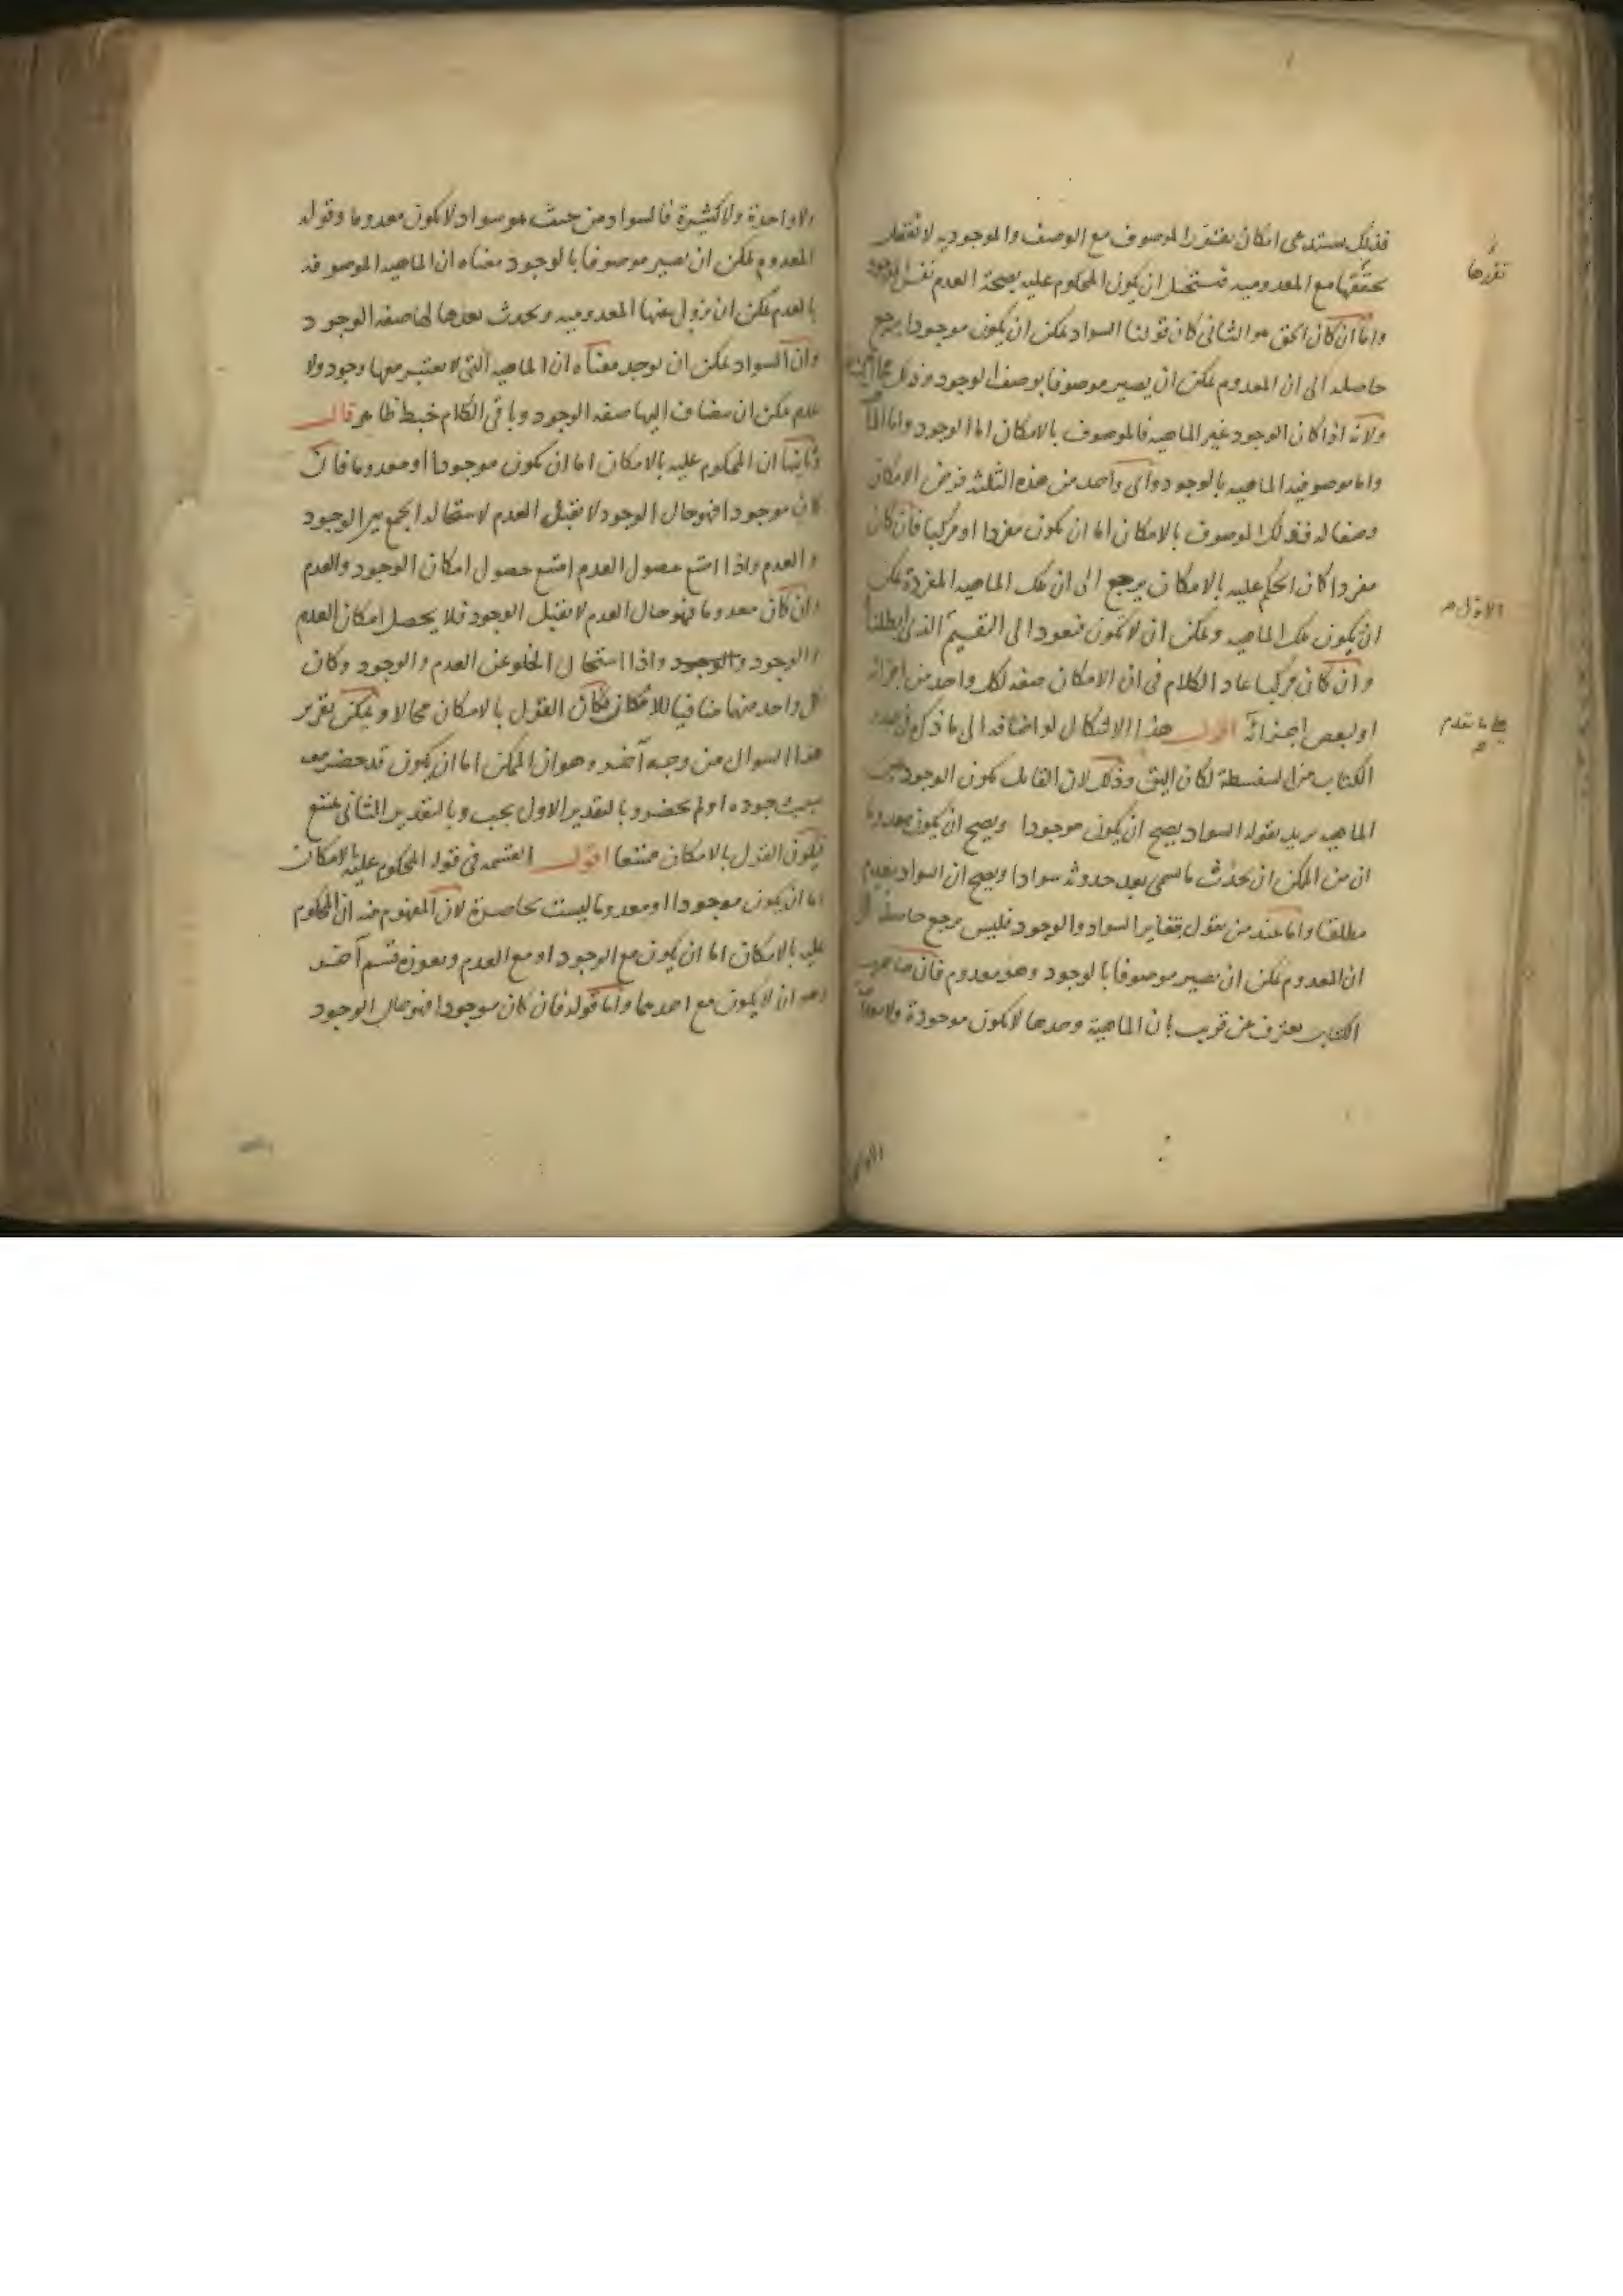 فذلك يستدعى امكان تقرر الموصوف مع الوصف والموجودية لا يعقل
تحققها مع المعدومية فيستحيل ان يكون المحكوم عليه بصحة العدم نفس الوجود
واما ان كان الحق هو الثانى كان قولنا السواد يمكن ان يكون موجودا يرجع
حاصله الى ان المعدوم يمكن ان يصير موصوفا بوصف الوجود وذلك محال
ولانه اذا كان الوجود غير الماهية فالموصوف بالامكان اما الوجود واما
واما موصوفية الماهية بالوجود واى واحد من هذه الثلثة فرض الامكان
وصفا له فذلك الموصوف بالامكان اما ان يكون مفردا او مركبا فان كان
مفردا كان الحكم عليه بالامكان يرجع الى ان تلك الماهية المفردة يمكن
ان يكون تلك الماهية ويمكن ان لا تكون فيعود الى القسيم الذى ابطلنا
وان كان مركبا عاد الكلام فى ان الامكان صفة لكل واحد من اجزائه
او لبعض اجزائه اقول هذا الاشكال لو اضافه الى ما ذكره فى صدر
الكتاب من السفسطة لكان اليق وذلك لان القائل بكون الوجود
الماهية يريد بقوله السواد يصح ان يكون موجودا ويصح ان يكون معدوما
ان من الممكن ان يحدث ما يسمى بعد حدوثه سوادا ويصح ان السواد يعدم
مطلقا واما عند من يقول بتغاير السواد والوجود فليس يرجع حاصله الى
ان المعدوم يمكن ان يصير موصوفا بالوجود وهو معدوم فان صاحب
الكتاب يعترف عن قريب بان الماهية وحدها لا تكون موجودة ولا
تقررها
الاول
ما تقدم
ولا واحدة ولا كثيرة فالسواد من حيث هو سواد لا يكون معدوما وقوله
المعدوم يمكن ان يصير موصوفا بالوجود معناه ان الماهية الموصوفة
بالعدم يمكن ان يزول عنها المعدومية ويحدث بعدها لها صفة الوجود
وان السواد يمكن ان يوجد معناه ان الماهية التى لا يعتبر معها وجود ولا
عدم يمكن ان يضاف اليها صفة الوجود وباقى الكلام خبط ظاهر قال
وثانيها ان المحكوم عليه بالامكان اما ان يكون موجودا او معدوما فان
كان موجودا فهو حال الوجود لا يقبل العدم لاستحالة الجمع بين الوجود
والعدم واذا امتنع حصول العدم امتنع حصول امكان الوجود والعدم
وان كان معدوما فهو حال العدم لا يقبل الوجود فلا يحصل امكان العدم
والوجود والوجود واذا استحال الخلو عن العدم والوجود وكان
كل واحد منهما منافيا للامكان فكان القول بالامكان محالا ويمكن تقرير
هذا السوال من وجه آخر وهو ان الممكن اما ان يكون قد حضر معه
سبب وجوده او لم يحضر وبالتقدير الاول يجب وبالتقدير الثانى يمتنع
فيكون القول بالامكان ممتنعا اقول القسمة فى قوله المحكوم عليه بالامكان
اما ان يكون موجودا او معدوما ليست بحاصرة لان المفهوم منه ان المحكوم
عليه بالامكان اما ان يكون مع الوجود او مع العدم ويعوزه قسم آخر
وهو ان لا يكون مع احدهما واما قوله فان كان موجودا فهو حال الوجود